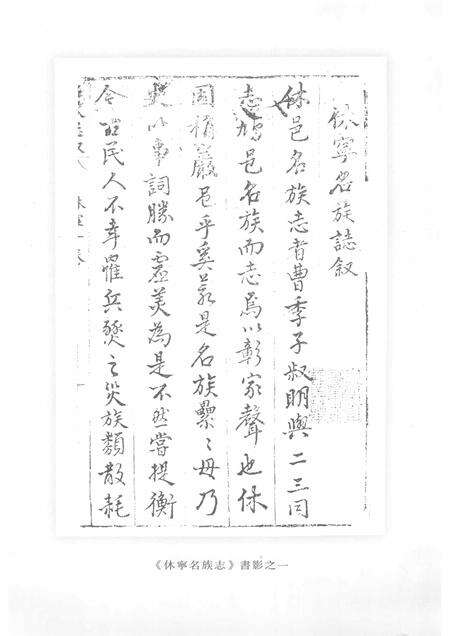 休寧名族誌叙
休邑名族志者曹季子叔明與二三同
志 邑名族而志焉以彰家聲也休
固 巖邑乎奚若是名族纍〻毋乃
以事詞勝而虛美為是不然嘗提衡
今 民人不幸罹兵燹之災族類散耗
《休寧名族志》書影之一